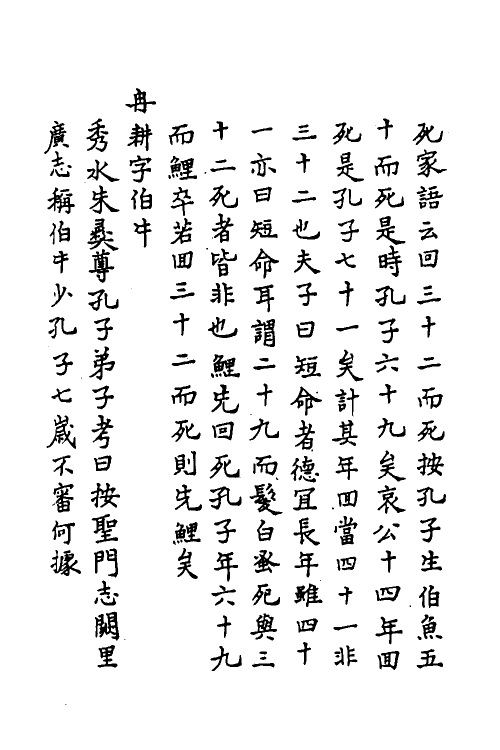 死家語云回三十二而死按孔子生伯魚五
十而死是時孔子六十九矣哀公十四年回
死是孔子七十一矣計其年回當四十一非
三十二也夫子曰短命者德冝長年雖四十
一亦曰短命耳謂二十九而髮白蚤死與三
十二死者皆非也鯉先回死孔子年六十九
而鯉卒若回三十二而死則先鯉矣
冉耕字伯牛
秀水朱彝尊孔子弟子考曰按聖門志闕里
廣志稱伯牛少孔子七歲不審何據